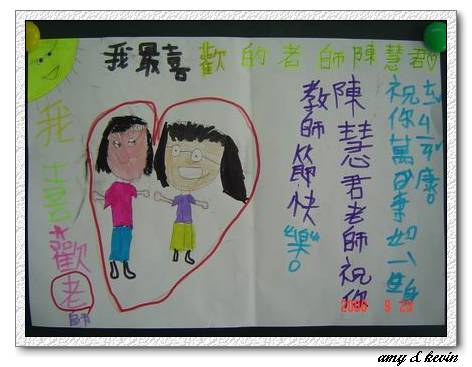 我最喜歡的老師陳慧君
我喜歡老師
康。
祝你萬事如
陳慧君老師祝你
教師節快樂。
amy & kevin